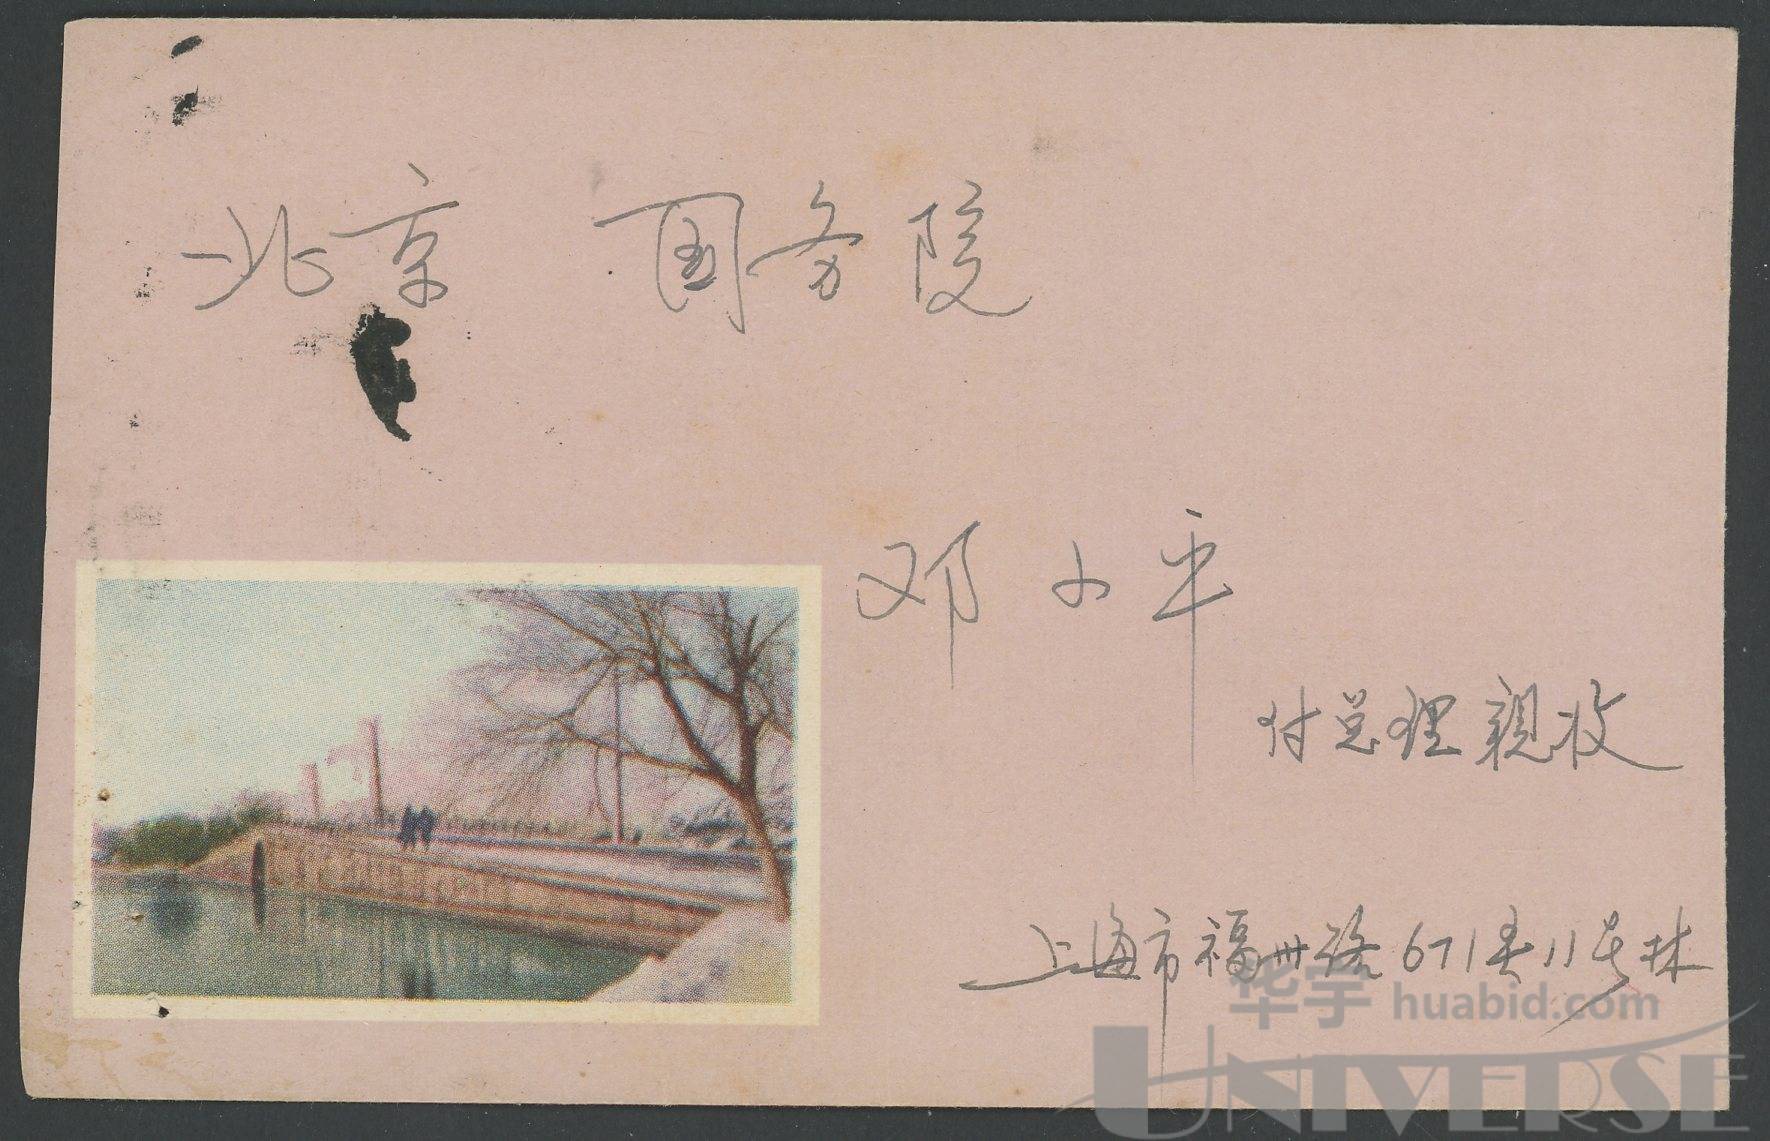 北京 国务院
邓小平
付总理親收
上海市福州路671弄11号林
华宇 huabid.com
UNIVERSE